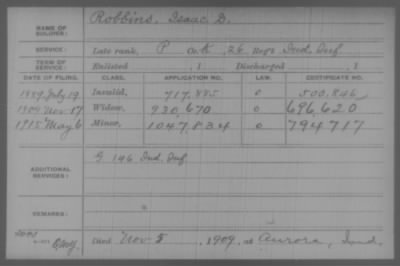 NAME OF SOLDIER: Robbins, Isaac D.
SERVICE: Late rank, P Co. K, 26 Reg't Ind. Inf.
TERM OF SERVICE: Enlisted , 1 Discharged , 1
DATE OF FILING. CLASS. APPLICATION NO. LAW. CERTIFICATE NO.
1889 July 19 Invalid, 717,885 0 500,846
1909 Nov. 17 Widow, 930,670 0 696,620
1915 May 6 Minor, 1047,834 0 794717
ADDITIONAL SERVICES: G 146 Ind. Inf.
REMARKS:
Died Nov. 5, 1909, at Aurora, Ind.